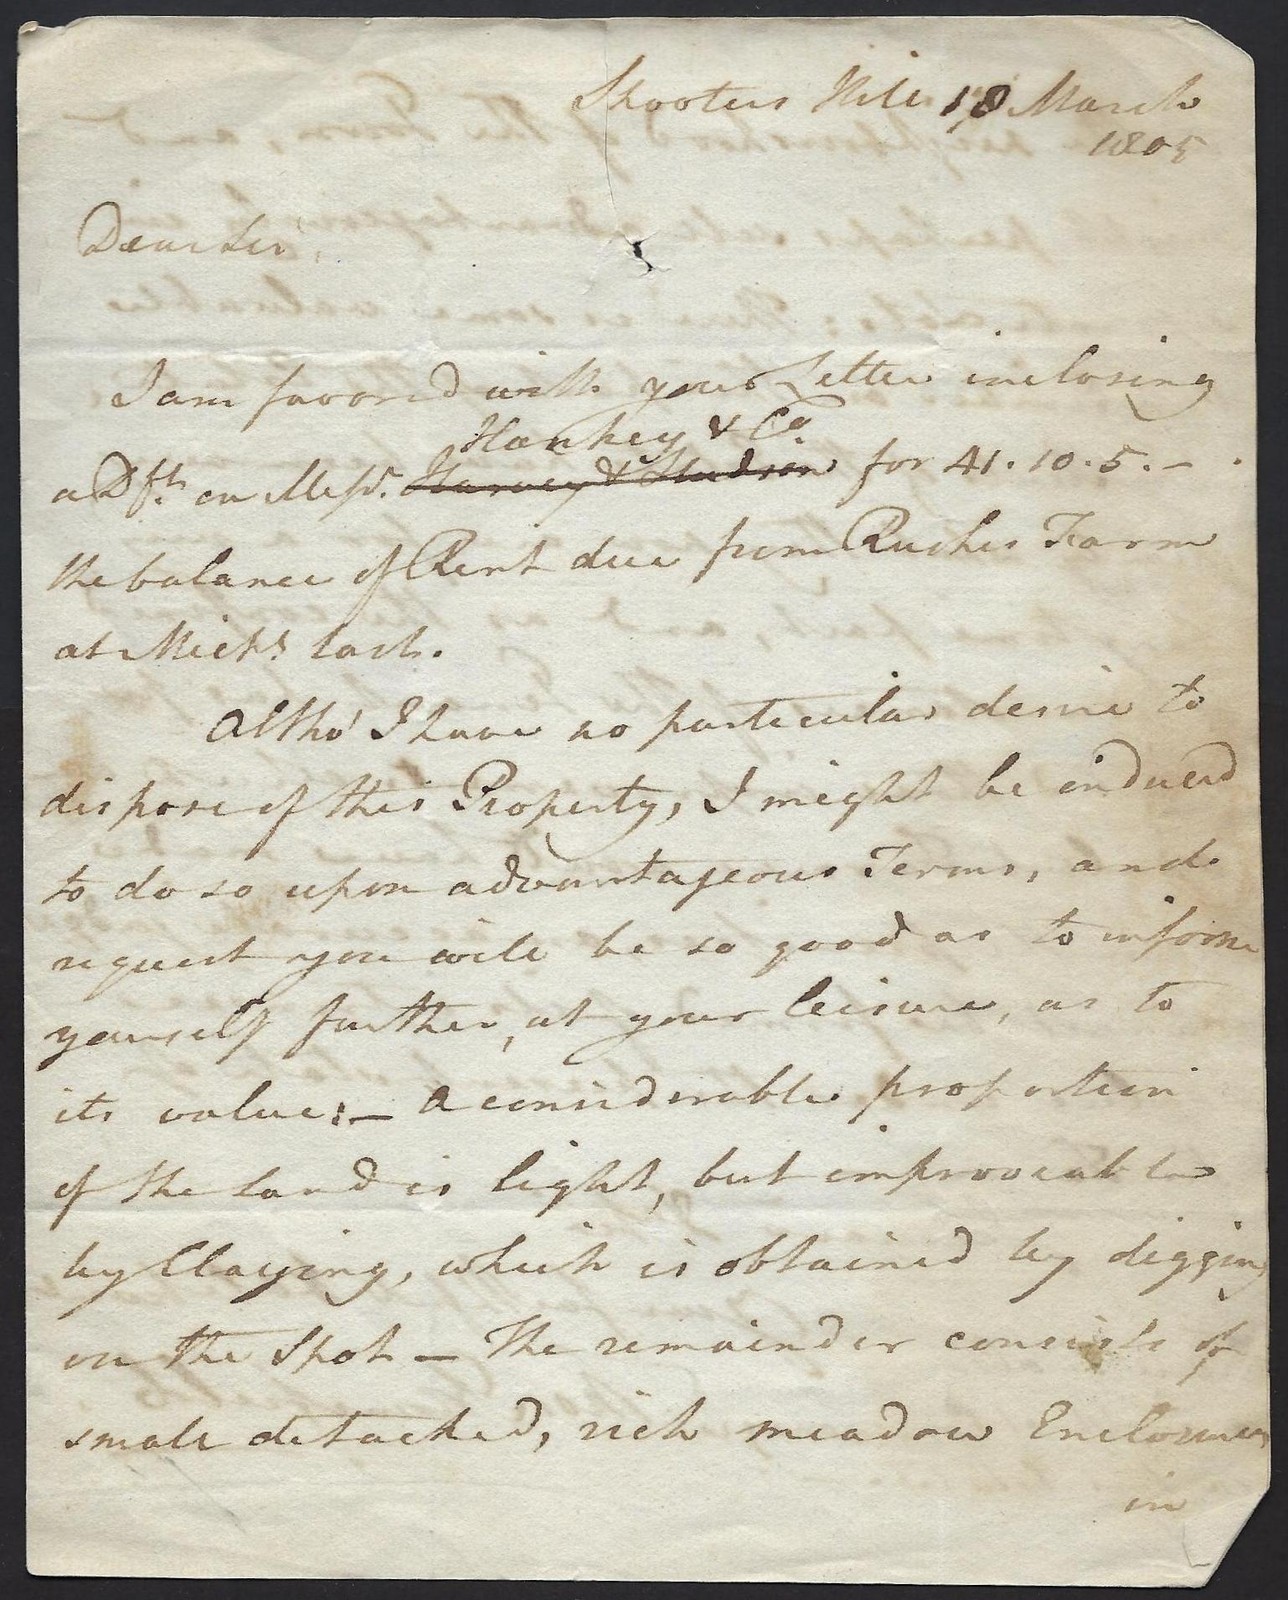 Shooters Hill 18 March
1805
Dear Sir,
I am favored with your Letter inclosing
Hankey & Co.
a Dft. on Messrs. Harvey & Hudson for 41.10.5.-.
the balance of Rent due from Rushes Farm
at Michs. last.
Altho' I have no particular desire to
dispose of this Property, I might be induced
to do so upon advantageous Terms, and
request you will be so good as to inform
yourself further, at your leisure, as to
its value:- A considerable proportion
of the Land is light, but improveable
by Claying, which is obtained by digging
on the Spot - The remainder consists of
small detached, rich meadow Enclosures
in